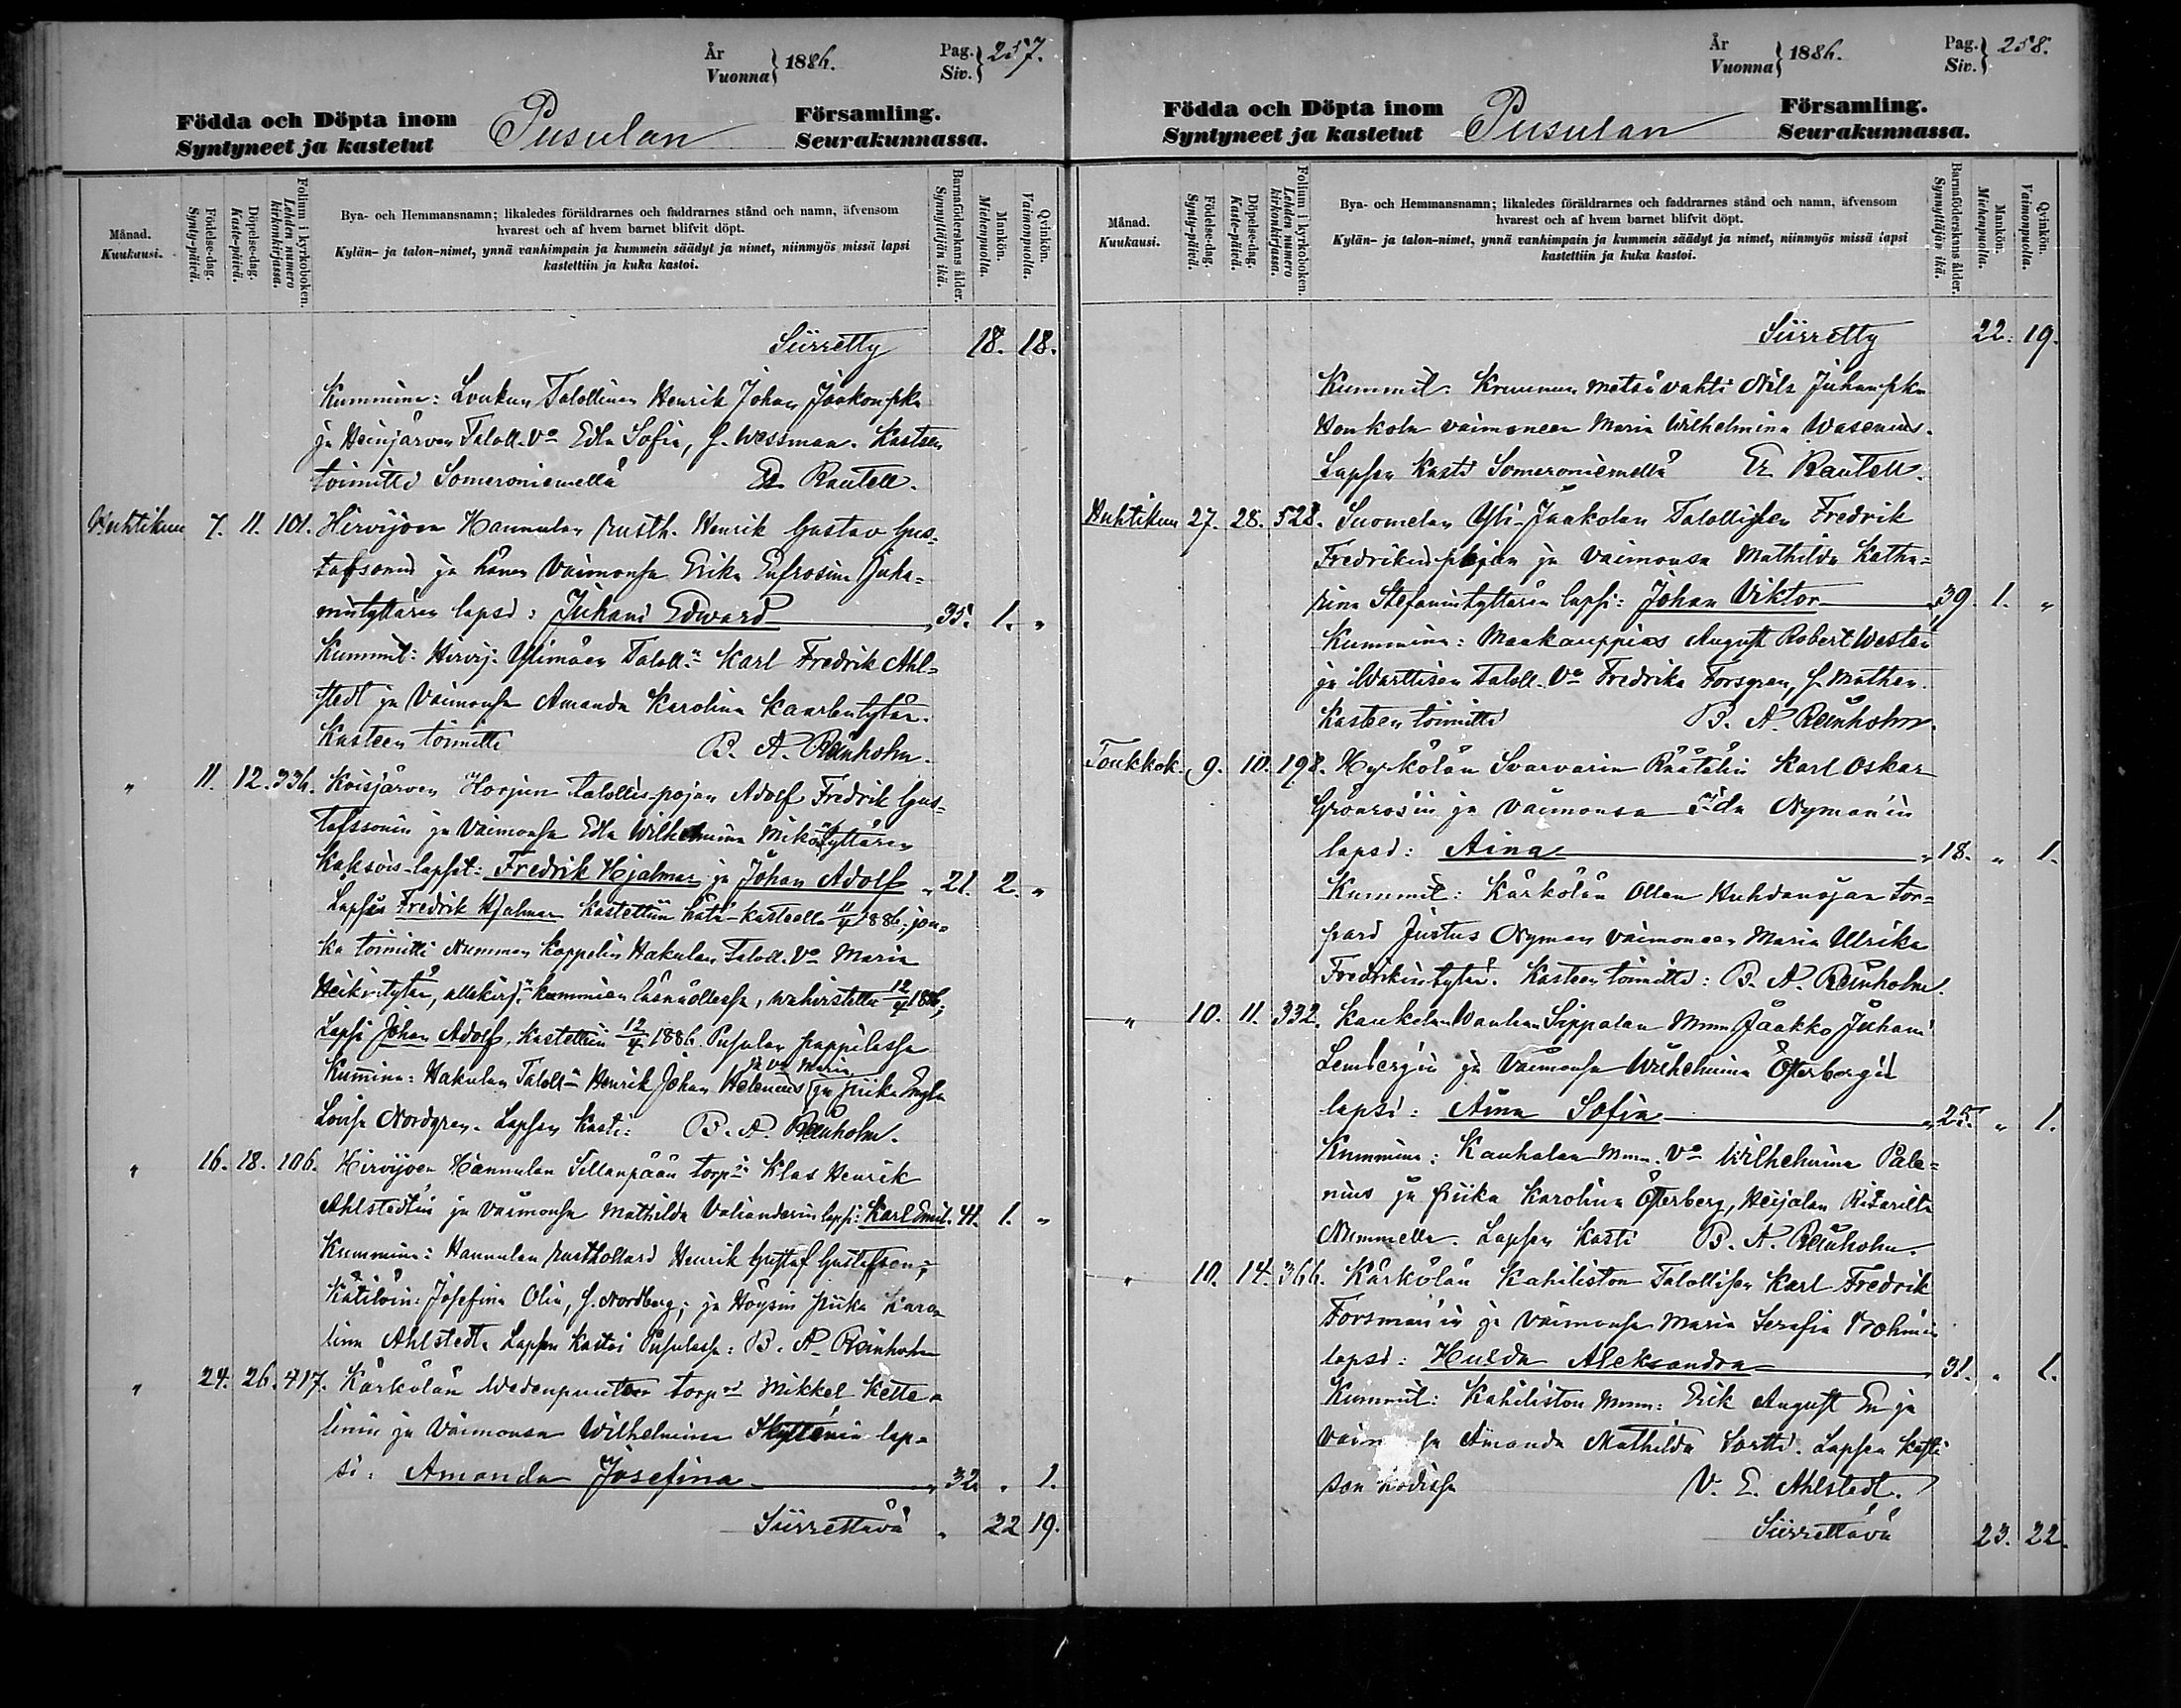 År
Vuonna } 1886. Pag.
Siv. } 257.
Födda och Döpta inom Pusulan Församling.
Syntyneet ja kastetut Seurakunnassa.
Månad.
Kuukausi.
Födelse-dag.
Synty-päivä.
Döpelse-dag.
Kaste-päivä.
Folium i kyrkoboken.
Lehden numero kirkonkirjassa.
Bya- och Hemmansnamn; likaledes föräldrarnes och faddrarnes stånd och namn, äfvensom
hvarest och af hvem barnet blifvit döpt.
Kylän- ja talon-nimet, ynnä vanhimpain ja kummein säädyt ja nimet, niinmyös missä lapsi
kastettiin ja kuka kastoi.
Barnaföderskans ålder.
Synnyttäjän ikä.
Mankön.
Miehenpuolla.
Qvinkön.
Vaimonpuolla.
Siirretty 18. 18.
Kummina: Loukun Talollinen Henrik Johan Jaakonpka
ja Heinjärven Taloll. Vo Edla Sofia, f. Wessman. Kasteen
toimitti Someroniemellä Rautell.
Huhtikuu 7. 11. 101. Hirvijoen Hannulan rusth. Henrik Gustav Gus-
tafsonin ja hänen Vaimonsa Erika Eufrosina Juha-
nintyttären lapsi: Juhani Edward 35. 1. "
Kummit: Hirvij. Ylimäen Taloll:n Karl Fredrik Ahl-
stedt ja Vaimonsa Amanda Karolina Kaarlentytär.
Kasteen toimitti B. A. Reinholm.
" 11. 12. 336. Koisjärven Horjun talollis-pojan Adolf Fredrik Gus-
tafssonin ja Vaimonsa Edla Wilhelmina Mikontyttären
Kaksois-lapset: Fredrik Hjalmar ja Johan Adolf " 21. 2. "
Lapsen Fredrik Hjalmar kastettiin hätä-kasteella 11/4 1886; jon-
ka toimitti Nummen Kappelin Hakulan Taloll. Vo Maria
Heikintytär, allekirj. kummien läsnäollessa, wahvistettu 12/4 1886;
Lapsi Johan Adolf, kastettiin 12/4 1886. Pusulan pappilassa
ja Vo Maria
Kummina: Hakulan Taloll:n Henrik Johan Helenius ja piika Engla
Lovisa Nordgren. Lapsen kasti: B. A. Reinholm.
" 16. 18. 106. Hirvijoen Hannulan Sillanpään torp:n Klas Henrik
Ahlstedtin ja vaimonsa Mathilda Valianderin lapsi: Karl Emil. 41. 1. "
Kummina: Hannulan rusthollard Henrik Gustaf Gustafsson;
Kätilöin: Josefina Olin, f. Nordberg; ja Höysin piika Karo-
lina Ahlstedt. Lapsen kastoi Pusulassa: B. A. Reinholm
" 24. 26. 417. Kärkölän Wedenpuntar torp:n Mikkel Kette-
linin ja Vaimonsa Wilhelmina Skyttenin lap-
si: Amanda Josefina " 32. " 1.
Siirrettävä " 22 19.
År
Vuonna } 1886. Pag.
Siv. } 258.
Födda och Döpta inom Pusulan Församling.
Syntyneet ja kastetut Seurakunnassa.
Månad.
Kuukausi.
Födelse-dag.
Synty-päivä.
Döpelse-dag.
Kaste-päivä.
Folium i kyrkoboken.
Lehden numero kirkonkirjassa.
Bya- och Hemmansnamn; likaledes föräldrarnes och faddrarnes stånd och namn, äfvensom
hvarest och af hvem barnet blifvit döpt.
Kylän- ja talon-nimet, ynnä vanhimpain ja kummein säädyt ja nimet, niinmyös missä lapsi
kastettiin ja kuka kastoi.
Barnaföderskans ålder.
Synnyttäjän ikä.
Mankön.
Miehenpuolla.
Qvinkön.
Vaimonpuolla.
Siirretty 22. 19.
Kummit. Kruunun metsävahti Nils Juhanpka
Honkola vaimoneen Maria Wilhelmina Wasenius.
Lapsen kasti Someroniemellä Rautell.
Huhtikuu 27. 28. 528. Suomelan Yli-Jaakolan Talollisen Fredrik
Fredrikinpojan ja vaimonsa Mathilda Katha-
rina Stefanintyttären lapsi: Johan Viktor 39. 1. "
Kummina: Maakauppias August Robert Westen
ja Warttisen Taloll. Vo Fredrika Forsgren, f. Mathen.
Kasteen toimitti B. A. Reinholm.
Toukok. 9. 10. 198. Hyrkölän Svarvarin Räätälin Karl Oskar
Grönroos'in ja vaimonsa Ida Nyman'in
lapsi: Aina " 18. " 1.
Kummit: Kärkölän Ollan Huhdanojan tor-
pard Justus Nyman vaimoneen Maria Ulrika
Fredrikintytär. Kasteen toimitti: B. A. Reinholm.
" 10. 11. 332. Kaukelan Wanhan Sippalan Mmm Jaakko Juhani
Lemberg'in ja Vaimonsa Wilhelmina Österberg'in
lapsi: Aina Sofia " 25. " 1.
Kummina: Kauhalan Mmm. Vo Wilhelmina Pale-
nius ja piika Karolina Österberg, Heijalan
Nummella. Lapsen kasti B. A. Reinholm.
" 10. 14. 366. Kärkölän Kahiliston Talollisen Karl Fredrik
Forsman'in ja Vaimonsa Maria Serafia
lapsi: Hulda Aleksandra " 31. " 1.
Kummit: Kahiliston Mmm: Erik August En ja
Amanda Mathilda Lartti. Lapsen kasti
V. E. Ahlstedt.
Siirrettävä 23. 22.